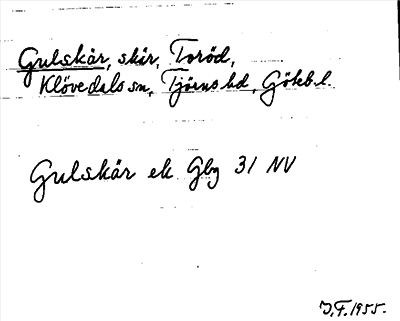 Gulskär, skär, Toröd,
Klövedals sn, Tjörns hd, Götebl.
Gulskär ek Gbg 31 NV
J.F. 1955.